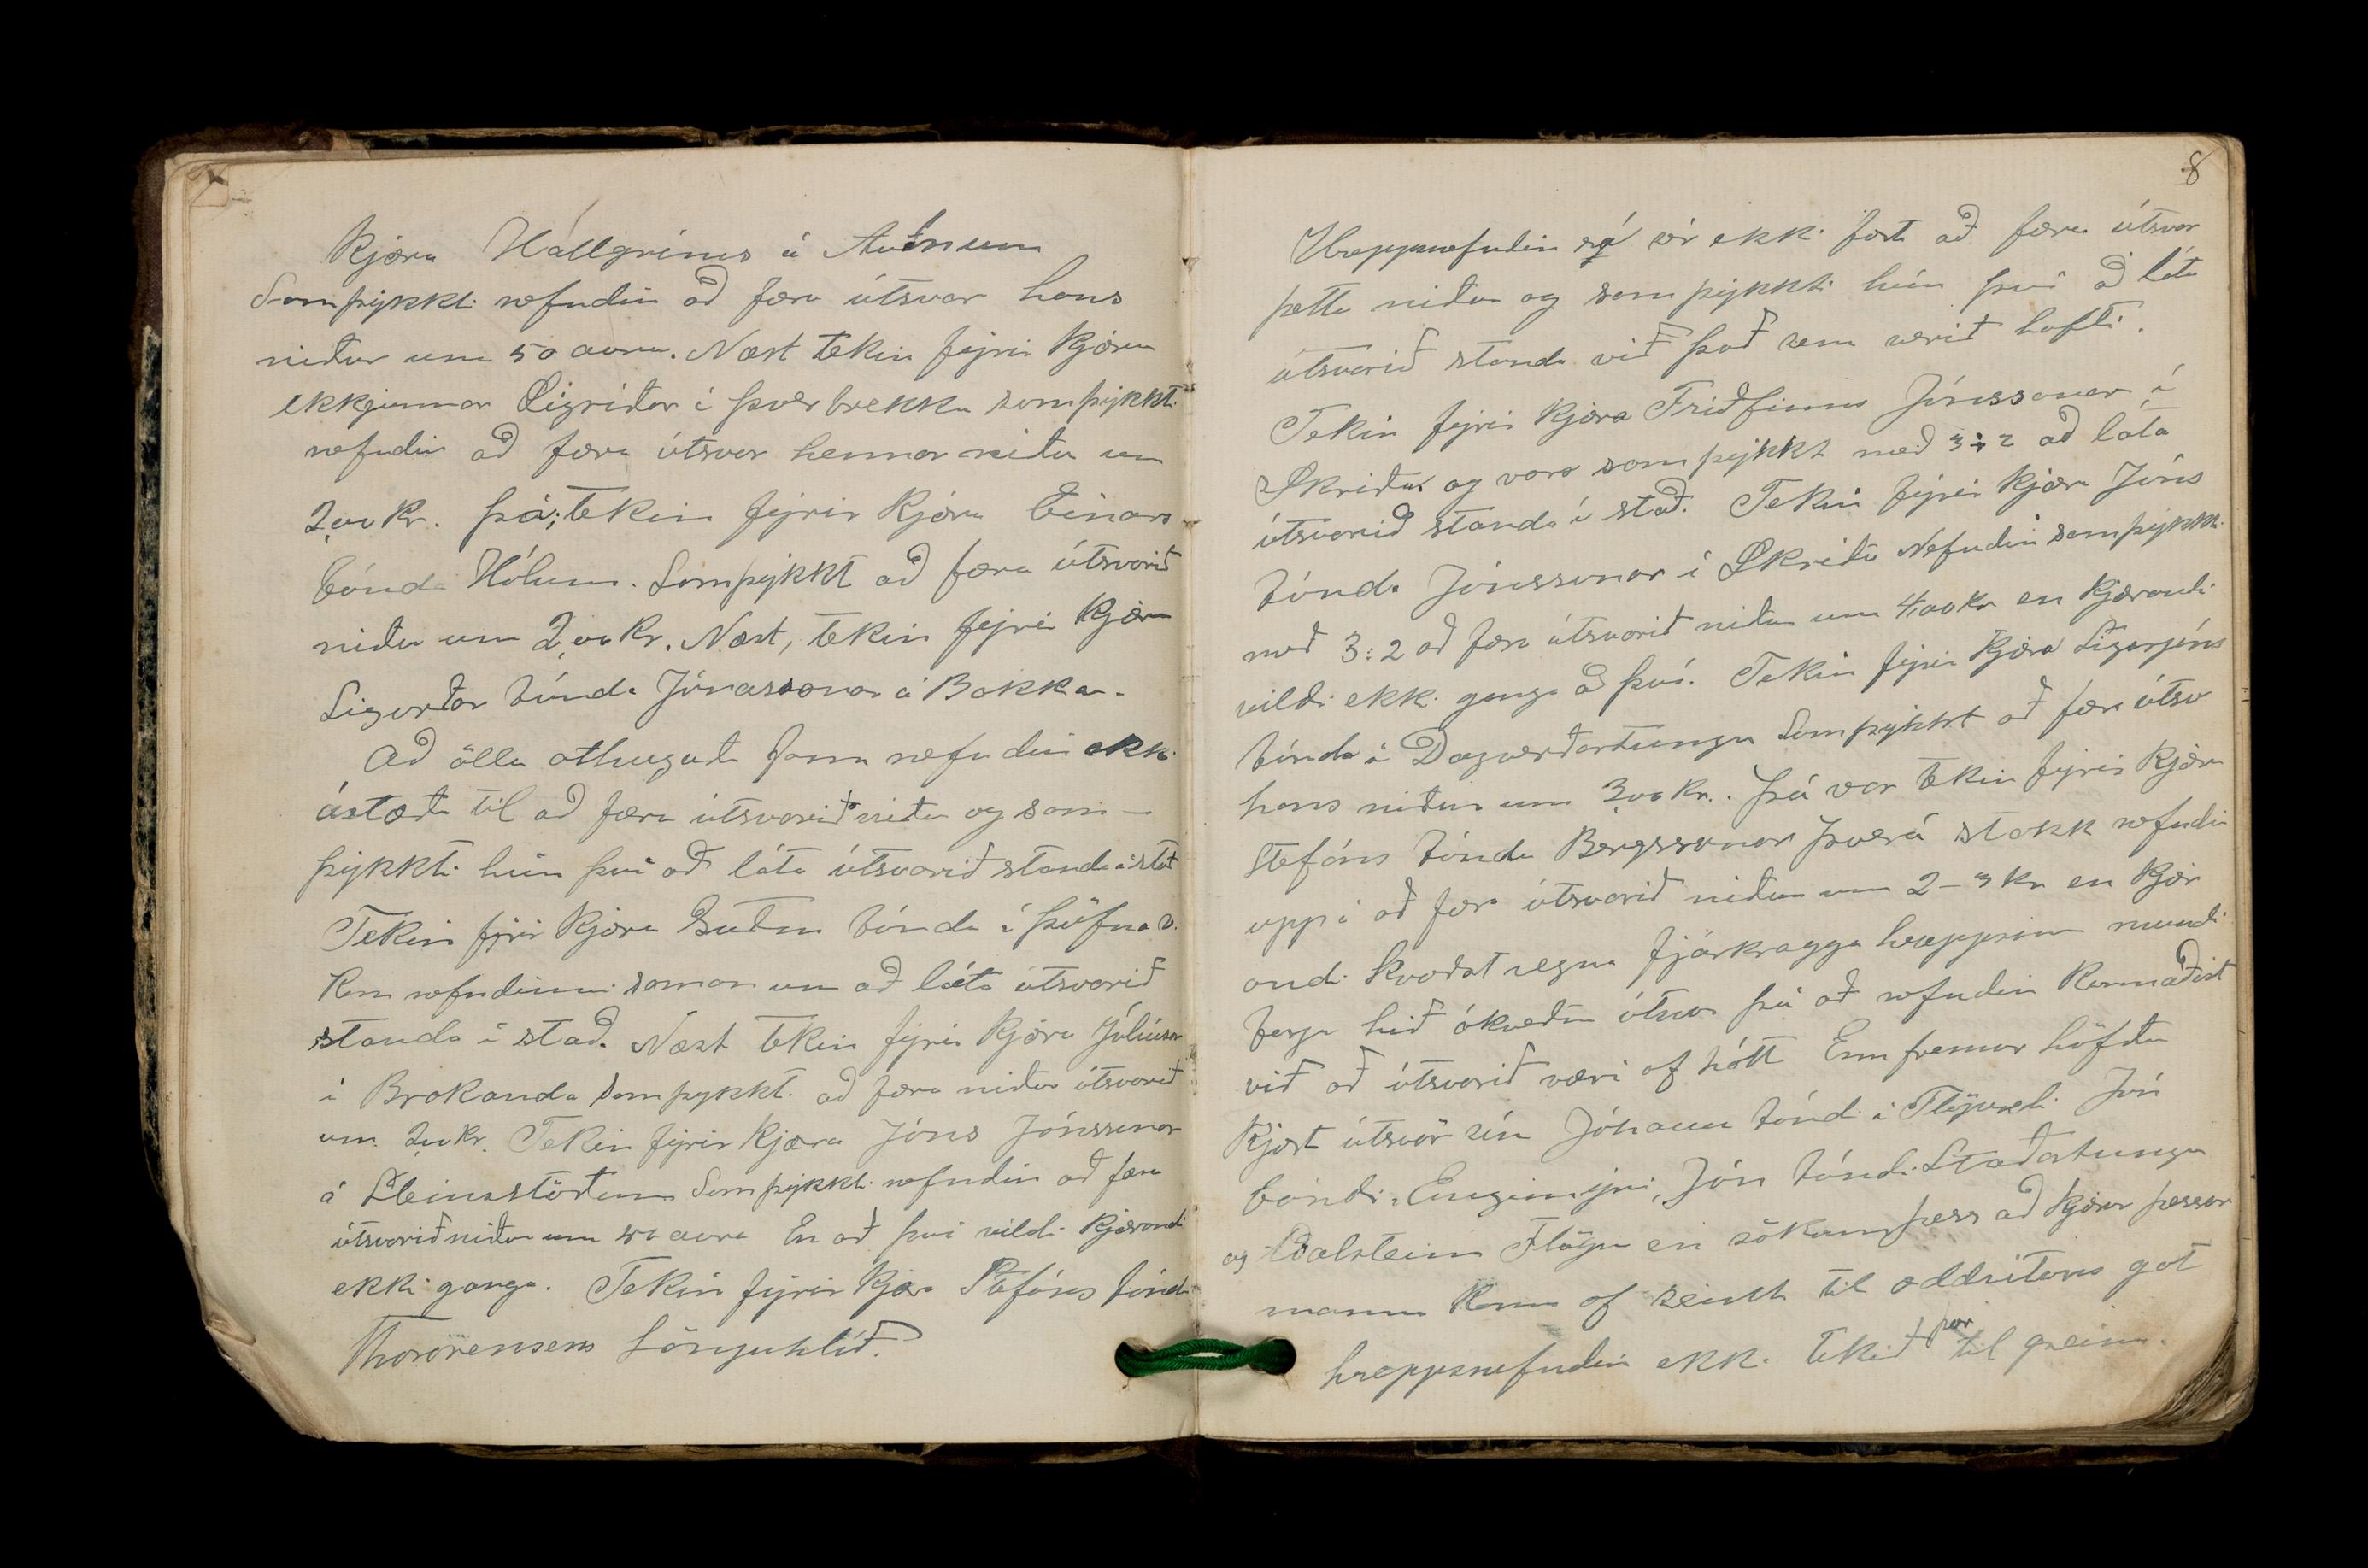 Kjæra Hallgríms á Auðnum
Samþykkti nefndin að færa útsvar hans
niður um 50 aura. Næst tekin fyrir kjæra
ekkjunnar Sigríðar í Þverbrekku samþykkti
nefndin að færa útsvar hennar niður um
2,00 kr. Þá; tekin fyrir kjæra Einars
bónda Hólum. Samþykkt að færa útsvarið
niður um 2,00 kr. Næst, tekin fyrir kjæra
Sigurðar bónda Jónassonar á Bakka.
Að öllu athuguðu fann nefndin ekki
ástæðu til að færa útsvarið niður og sam-
þykkti hún því að láta útsvarið standa í stað
Tekin fyrir kjæra Guðm bónda í Þúfnav.
Kom nefndinni saman um að láta útsvarið
standa í stað. Næst tekin fyrir kjæra Júlíusar
í Brakanda samþykkt að færa niður útsvarið
um 2,00 kr. Tekin fyrir kjæra Jóns Jónssonar
á Steinsstöðum Samþykkti nefndin að færa
útsvarið niður um 50 aura En að því vildi kjærandi
ekki ganga. Tekin fyrir kjæra Stefáns bónda
Thorarensens Lönguhlíð.
8
Hreppsnefndin sá sér ekki fært að færa útsvar
þetta niður og samþykkti hún því að láta
útsvarið standa við það sem verið hafði.
Tekin fyrir kjæra Friðfinns Jónssonar í
Skriðu og var samþykkt með 3:2 að láta
útsvarið standa í stað. Tekin fyrir kjæra Jóns
bónda Jónssonar í Skriðu Nefndin samþykkti
með 3:2 að færa útsvarið niður um 4,00 kr en kjærandi
vildi ekki ganga að því. Tekin fyrir kjæra Sigurjóns
bónda í Dagverðartungu Samþykkt að færa útsv
hans niður um 3,00 kr.. Þá var tekin fyrir kjæra
Stefáns bónda Bergssonar Þverá stakk nefndin
uppá að færa útsvarið niður um 2-3 kr en kjær
andi kvaðst vegna fjárkragga hreppsins mundi
borga hið ákveðna útsvar þá að nefndin kannaðist
við að útsvarið væri of hátt Ennfremur höfðu
kjært útsvör sín Jóhann bóndi í Flögu seli Jón
bóndi Engimýri, Jón bóndi Staðartungu
og Aðalsteinn Flögu en sökum þess að kjærur þessar
manna komu of seint til oddvitans gat
hreppsnefndin ekki tekið þær til greina.